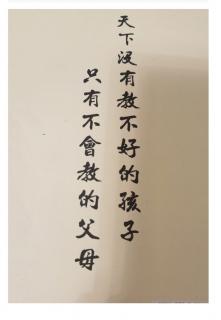 天下沒有教不好的孩子
只有不會教的父母